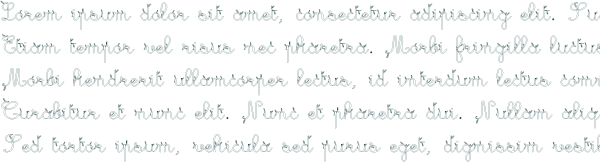 Lorem ipsum dolor sit amet, consectetur adipiscing elit.
Etiam tempor vel risus nec pharetra. Morbi fringilla luctus
Morbi hendrerit ullamcorper lectus, id interdum lectus
Curabitur et nunc elit. Nunc et pharetra dui. Nullam
Sed tortor ipsum, vehicula sed purus eget, dignissim